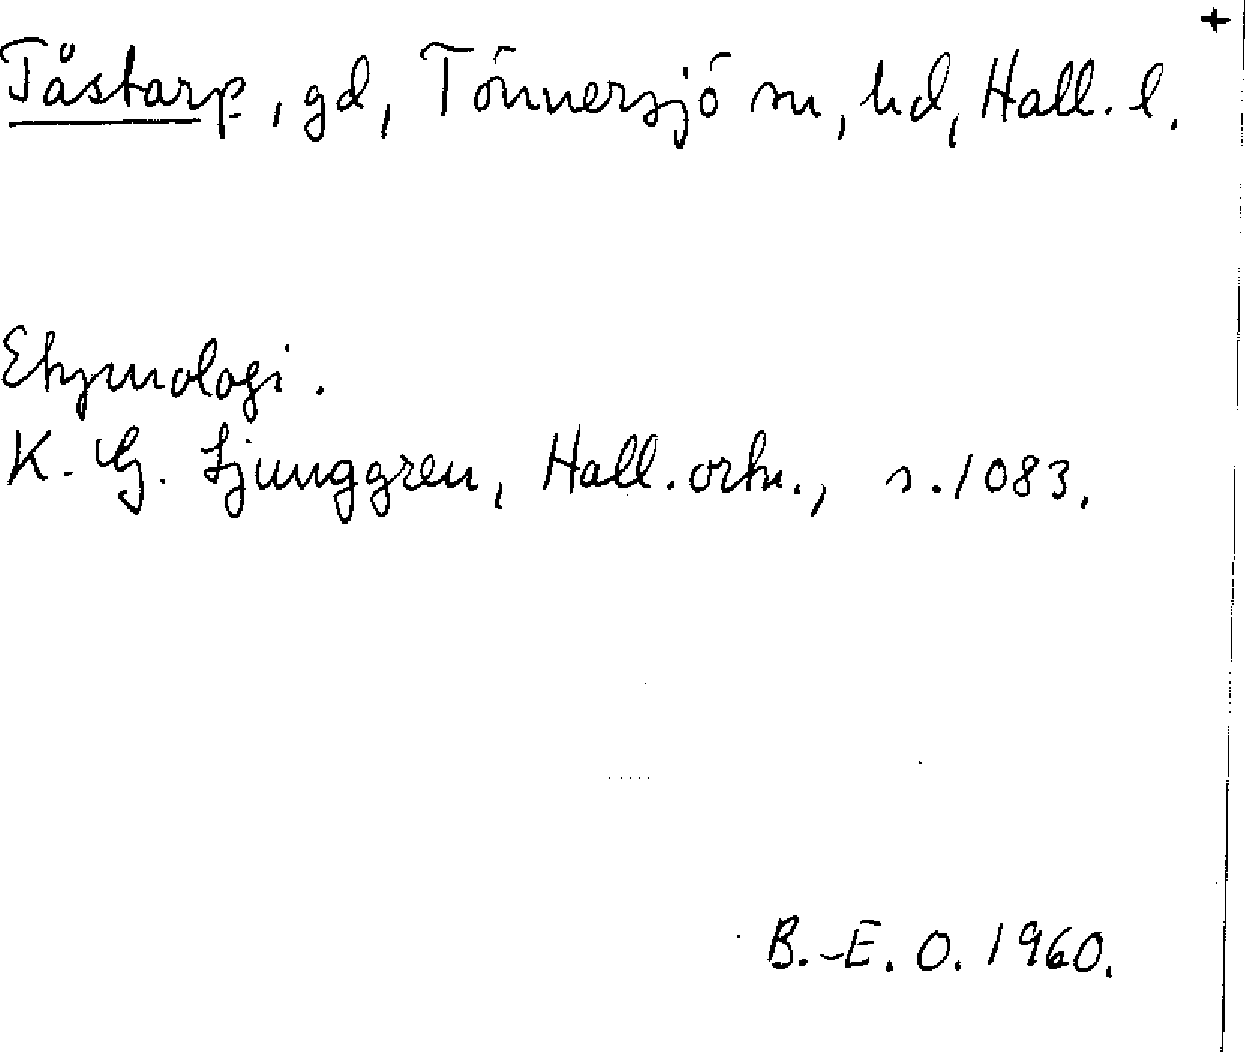 +
Tåstarp, gd, Tönnersjö sn, hd, Hall. l.
Etymologi.
K. G. Ljunggren, Hall. ortn., s. 1083.
B.-E. O. 1960.